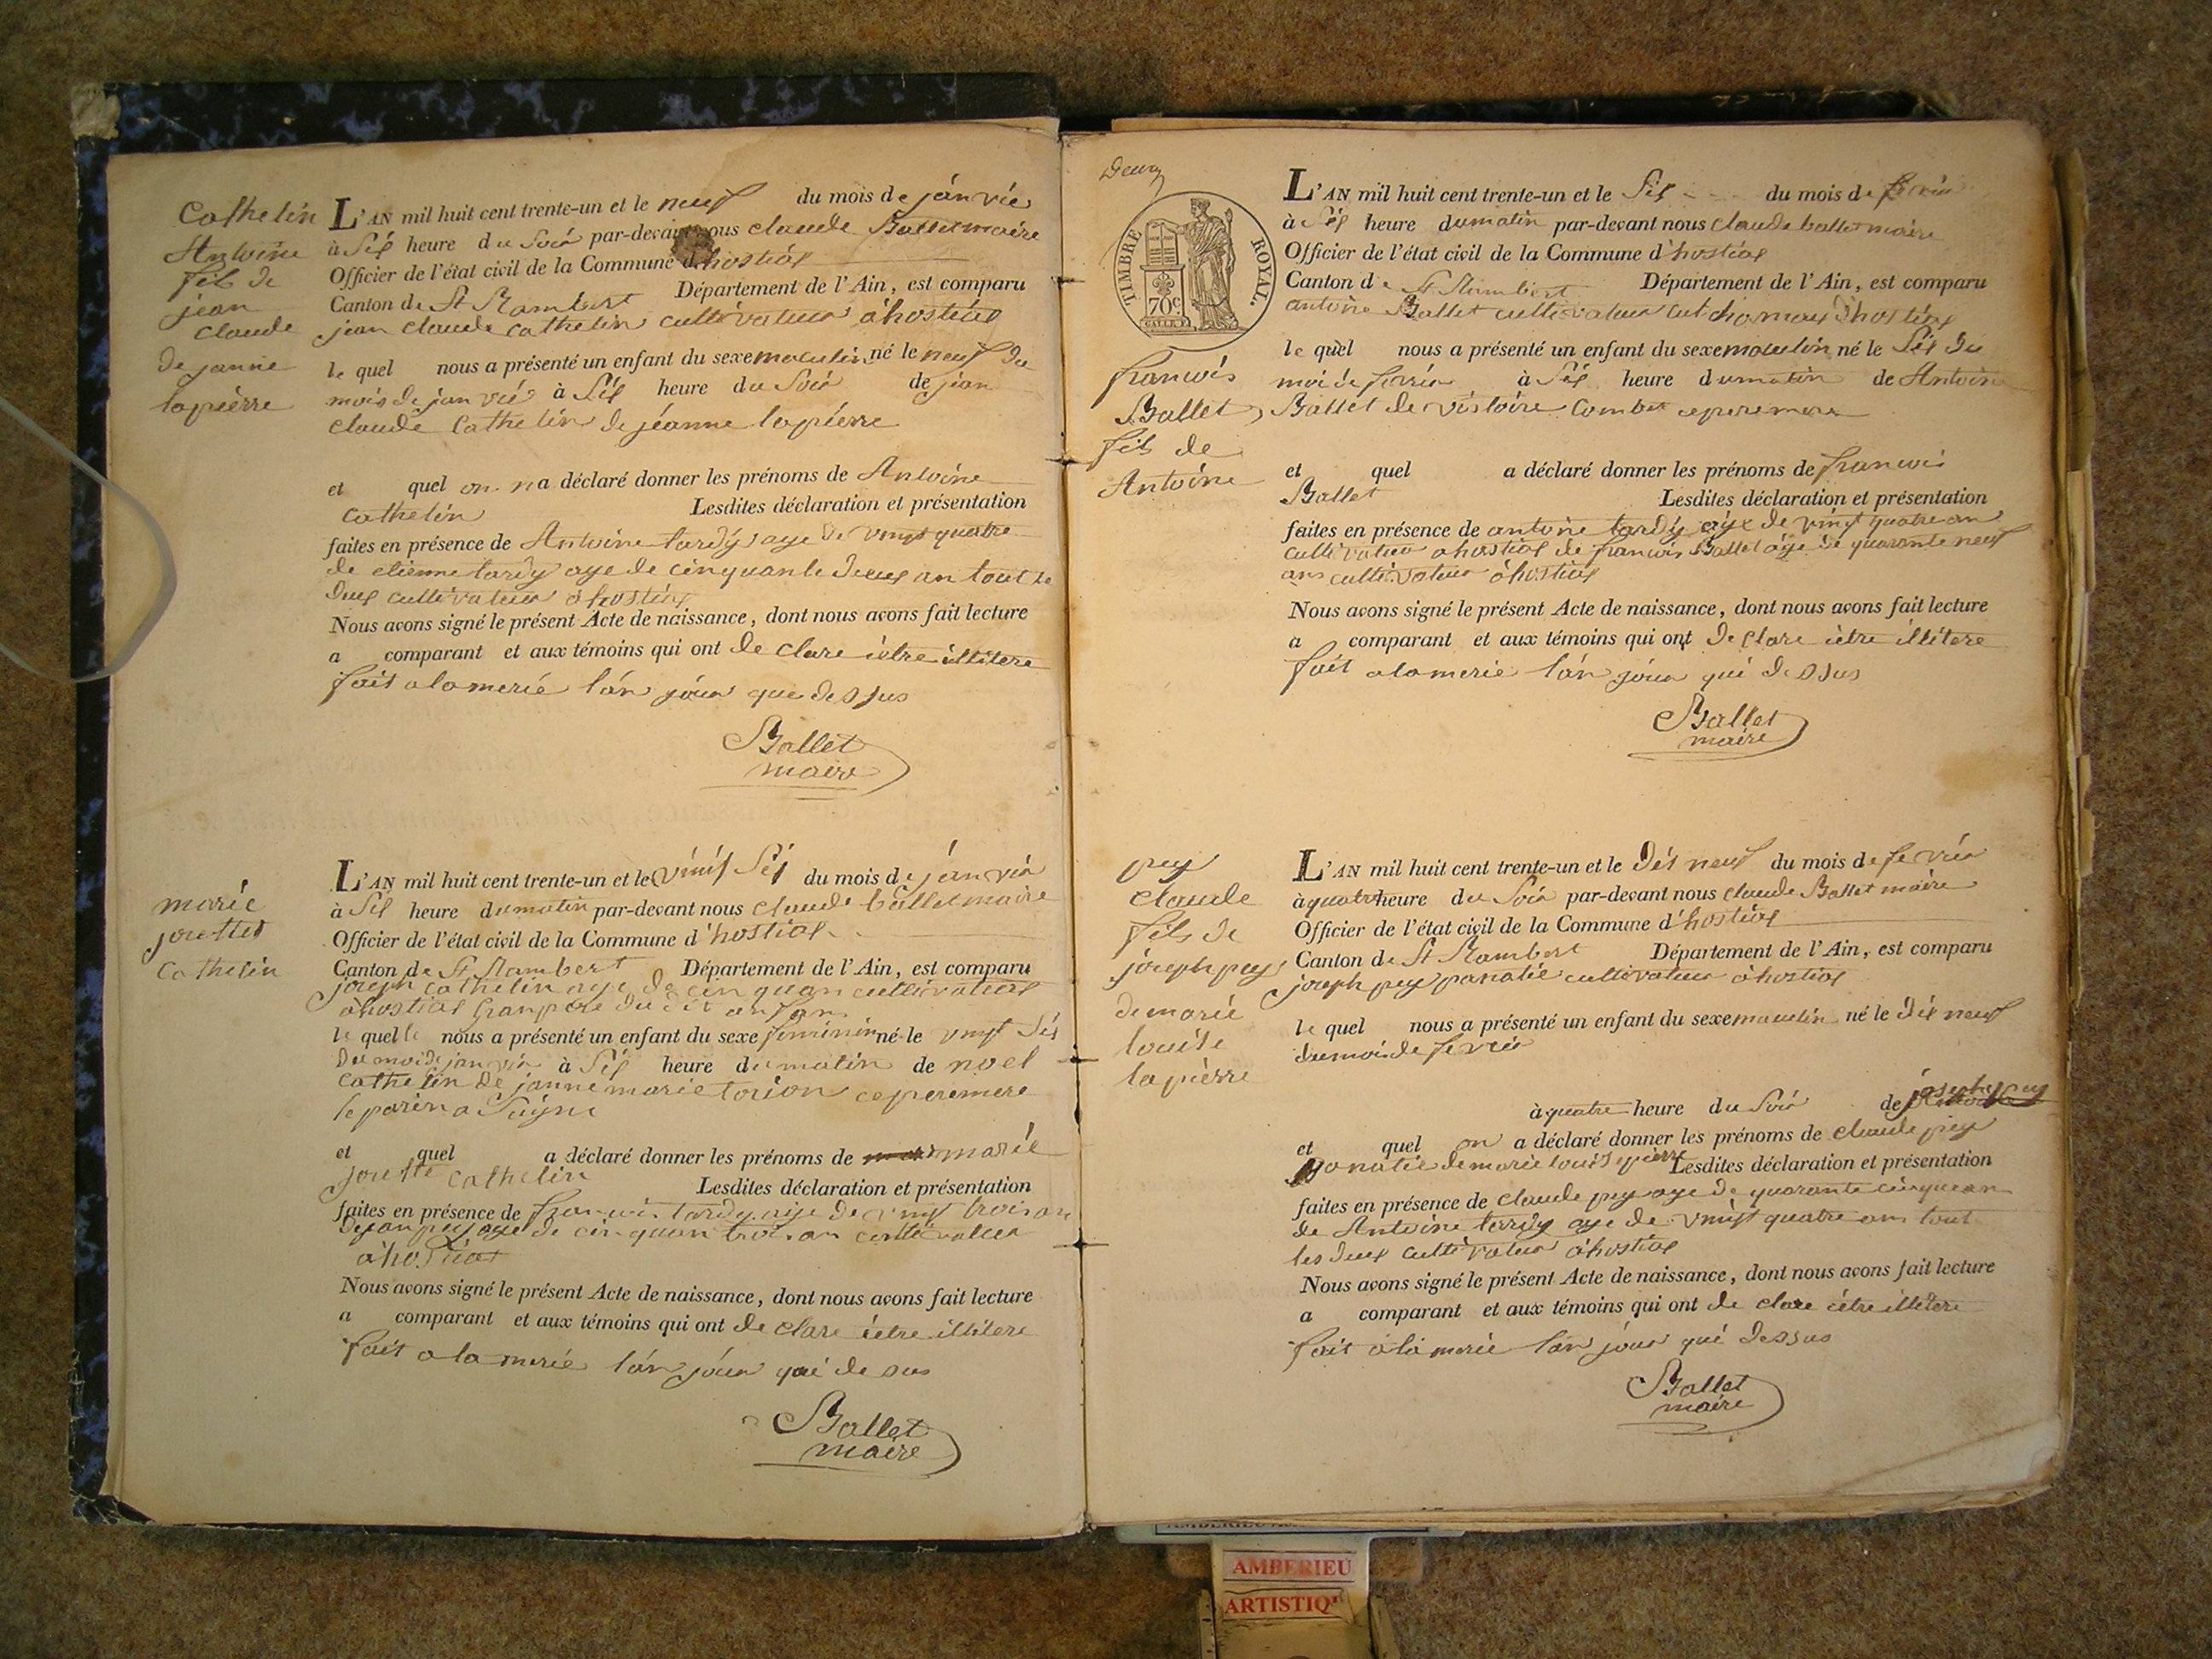 Cathelin
Antoine
fils de
jean
claude
de janne
lapierre
L'AN mil huit cent trente-un et le neuf du mois de janvié
à Sis heure du Soir par-devant nous claude Ballet maire
Officier de l'état civil de la Commune d'hostias
Canton de St Rambert Département de l'Ain, est comparu
jean claude cathelin cultivateur à hostias
le quel nous a présenté un enfant du sexe masculin né le neuf du
mois de janvié à Sis heure du Soir de jean
claude Cathelin de jéanne lapierre
et quel on na déclaré donner les prénoms de Antoine
cathelin Lesdites déclaration et présentation
faites en présence de Antoine tardy aye de vingt quatre
de etienne tardy aye de cinquante deux an tout le
deux cultivateur à hostias
Nous avons signé le présent Acte de naissance, dont nous avons fait lecture
a comparant et aux témoins qui ont de clare ietre illitere
fait a la merié l'an jour que dessus
Ballet
maire
marie
josette
Cathelin
L'AN mil huit cent trente-un et le vint Sis du mois de janvié
à Sis heure du matin par-devant nous claude ballet maire
Officier de l'état civil de la Commune d'hostias
Canton de St Rambert Département de l'Ain, est comparu
joseph cathelin aye de cinquan cultivateur
à hostias granpere du dit enfan
le quel nous a présenté un enfant du sexe feminin né le vingt Sis
du moi de janvié à Sis heure du matin de noel
Cathelin de janne marie ce pere mere
le parin a
et quel a déclaré donner les prénoms de marie
josette cathelin Lesdites déclaration et présentation
faites en présence de francois tardy aye de vingt trois an
de jean pey aye de cinquan trois an cultivateur
à hostias
Nous avons signé le présent Acte de naissance, dont nous avons fait lecture
a comparant et aux témoins qui ont de clare ietre illitere
fait a la merié l'an jour qui de sus
Ballet
maire
Deux
TIMBRE ROYAL.
70 c.
francois
Ballet
fils de
Antoine
L'AN mil huit cent trente-un et le Sis du mois de fevrié
à Sis heure du matin par-devant nous claude ballet maire
Officier de l'état civil de la Commune d'hostias
Canton de St Rambert Département de l'Ain, est comparu
antoine Ballet cultivateur d'hostias
le quel nous a présenté un enfant du sexe masculin né le Sis du
moi de fevrié à Sis heure du matin de Antoine
Ballet de victoire Combet ce pere mere
et quel a déclaré donner les prénoms de francois
Ballet Lesdites déclaration et présentation
faites en présence de antoine tardy aye de vingt quatre an
cultivateur à hostias de francois Ballet aye de quarante neuf
ans cultivateur à hostias
Nous avons signé le présent Acte de naissance, dont nous avons fait lecture
a comparant et aux témoins qui ont de clare ietre illitere
fait a la merie l'an jour qui dessus
Ballet
maire
pey
claude
fils de
joseph pey
de marie
louise
lapierre
L'AN mil huit cent trente-un et le dis neuf du mois de fevrié
à quatre heure du Soir par-devant nous claude Ballet maire
Officier de l'état civil de la Commune d'hostias
Canton de St Rambert Département de l'Ain, est comparu
joseph pey panatié cultivateur à hostias
le quel nous a présenté un enfant du sexe masculin né le dis neuf
du mois de fevrié
à quatre heure du Soir de joseph pey
et quel on a déclaré donner les prénoms de claude pey
panatié de marie louise pierre Lesdites déclaration et présentation
faites en présence de claude pey aye de quarante cinque an
de Antoine tardy aye de vingt quatre ans tout
les deux cultivateur à hostias
Nous avons signé le présent Acte de naissance, dont nous avons fait lecture
a comparant et aux témoins qui ont de clare ietre illitere
fait à la merie l'an jour qui dessus
Ballet
maire
AMBERIEU
ARTISTIQ